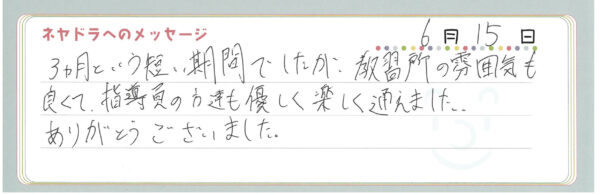 ネヤドラへのメッセージ
6月15日
3ヵ月という短い期間でしたが、教習所の雰囲気も
良くて、指導員の方達も優しく楽しく通えました。
ありがとうございました。